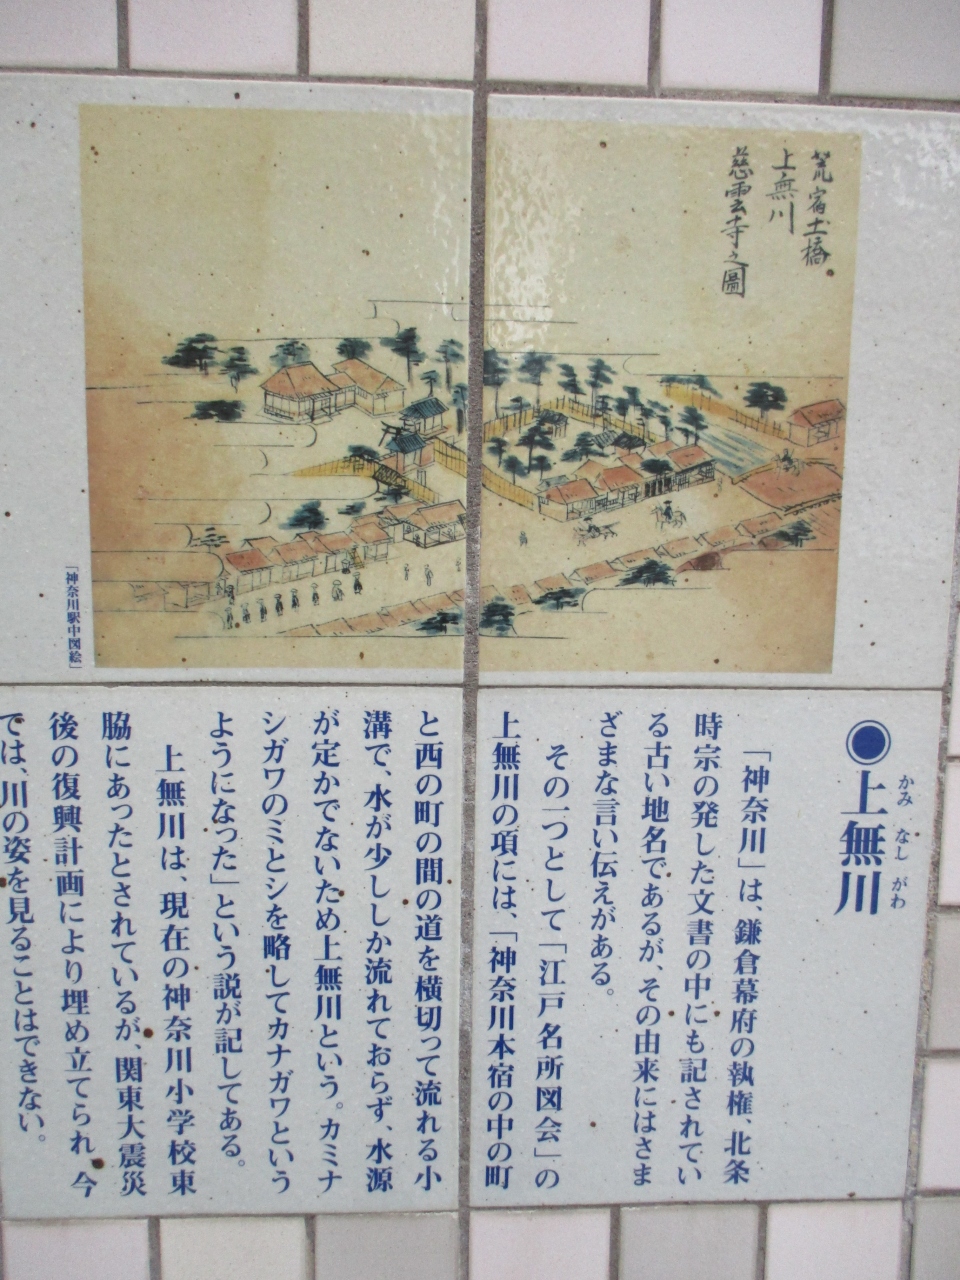 荒宿土橋
上無川
慈雲寺之圖
「神奈川駅中図絵」
◉上無川
かみ なし がわ
「神奈川」は、鎌倉幕府の執権、北条
時宗の発した文書の中にも記されてい
る古い地名であるが、その由来にはさま
ざまな言い伝えがある。
その一つとして「江戸名所図会」の
上無川の項には、「神奈川本宿の中の町
と西の町の間の道を横切って流れる小
溝で、水が少ししか流れておらず、水源
が定かでないため上無川という。カミナ
シガワのミとシを略してカナガワという
ようになった」という説が記してある。
上無川は、現在の神奈川小学校東
脇にあったとされているが、関東大震災
後の復興計画により埋め立てられ、今
では、川の姿を見ることはできない。